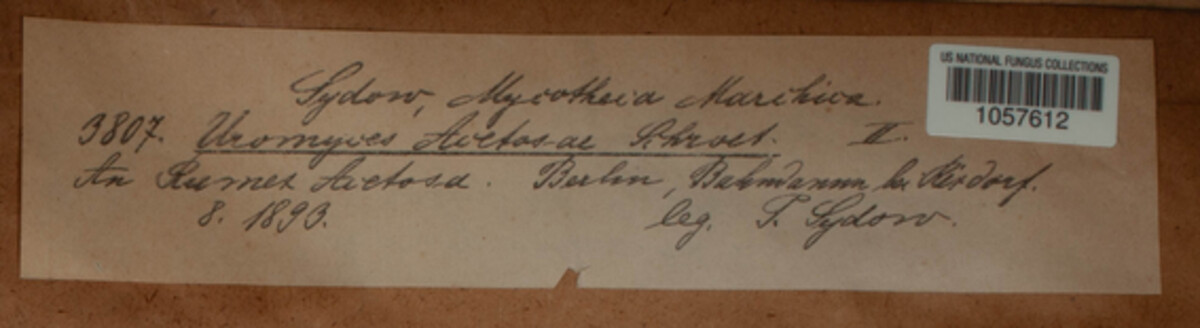 Sydow, Mycotheca Marchica.
3807. Uromyces Acetosae Schroet. II.
An Rumex Acetosa. Berlin, Bahndamm bei
8. 1893. leg. P. Sydow.
US NATIONAL FUNGUS COLLECTIONS
1057612